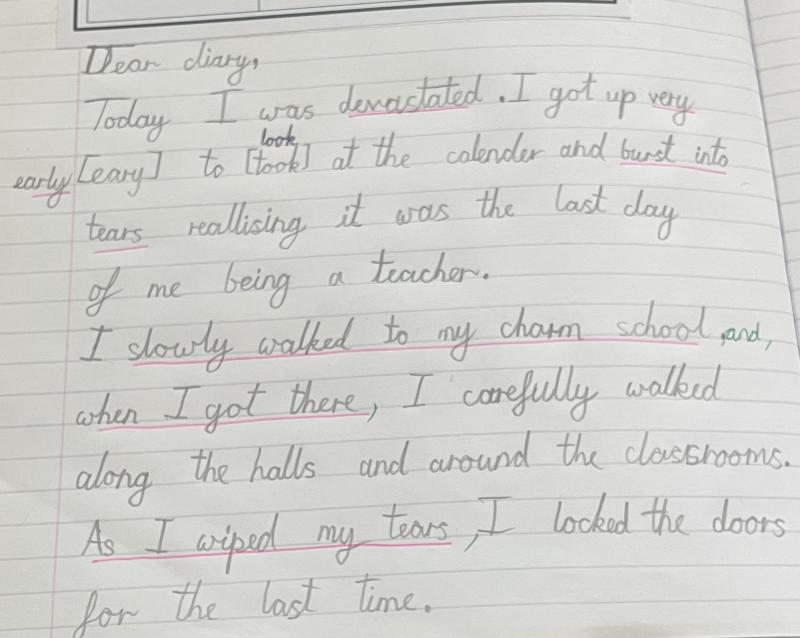 Dear diary,
Today I was devastated. I got up very
look
early [eary] to [took] at the calender and burst into
tears reallising it was the last day
of me being a teacher.
I slowly walked to my charm school ,and,
when I got there, I carefully walked
along the halls and around the classrooms.
As I wiped my tears, I locked the doors
for the last time.